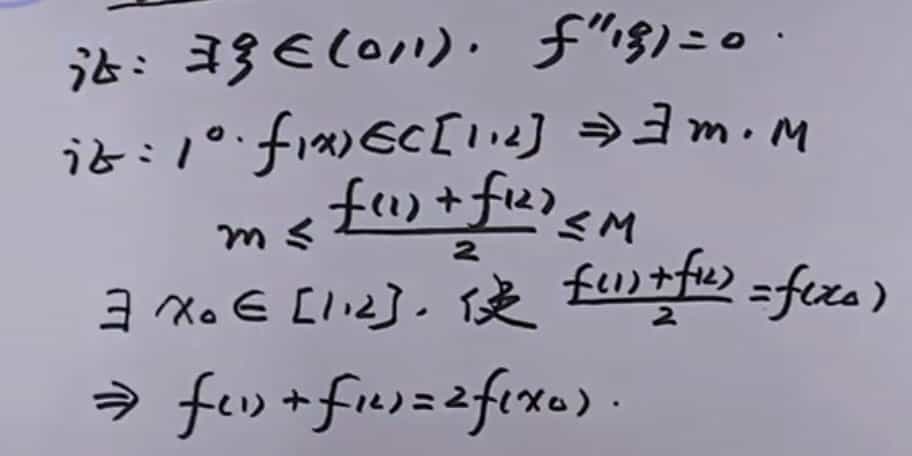 证: ∃ξ∈(0,1). f''(ξ)=0.
证: 1°. f(x)∈C[1,2] ⇒ ∃ m. M
m ≤ (f(1)+f(2))/2 ≤ M
∃ x₀∈[1,2]. 使 (f(1)+f(2))/2 = f(x₀)
⇒ f(1)+f(2)=2f(x₀).